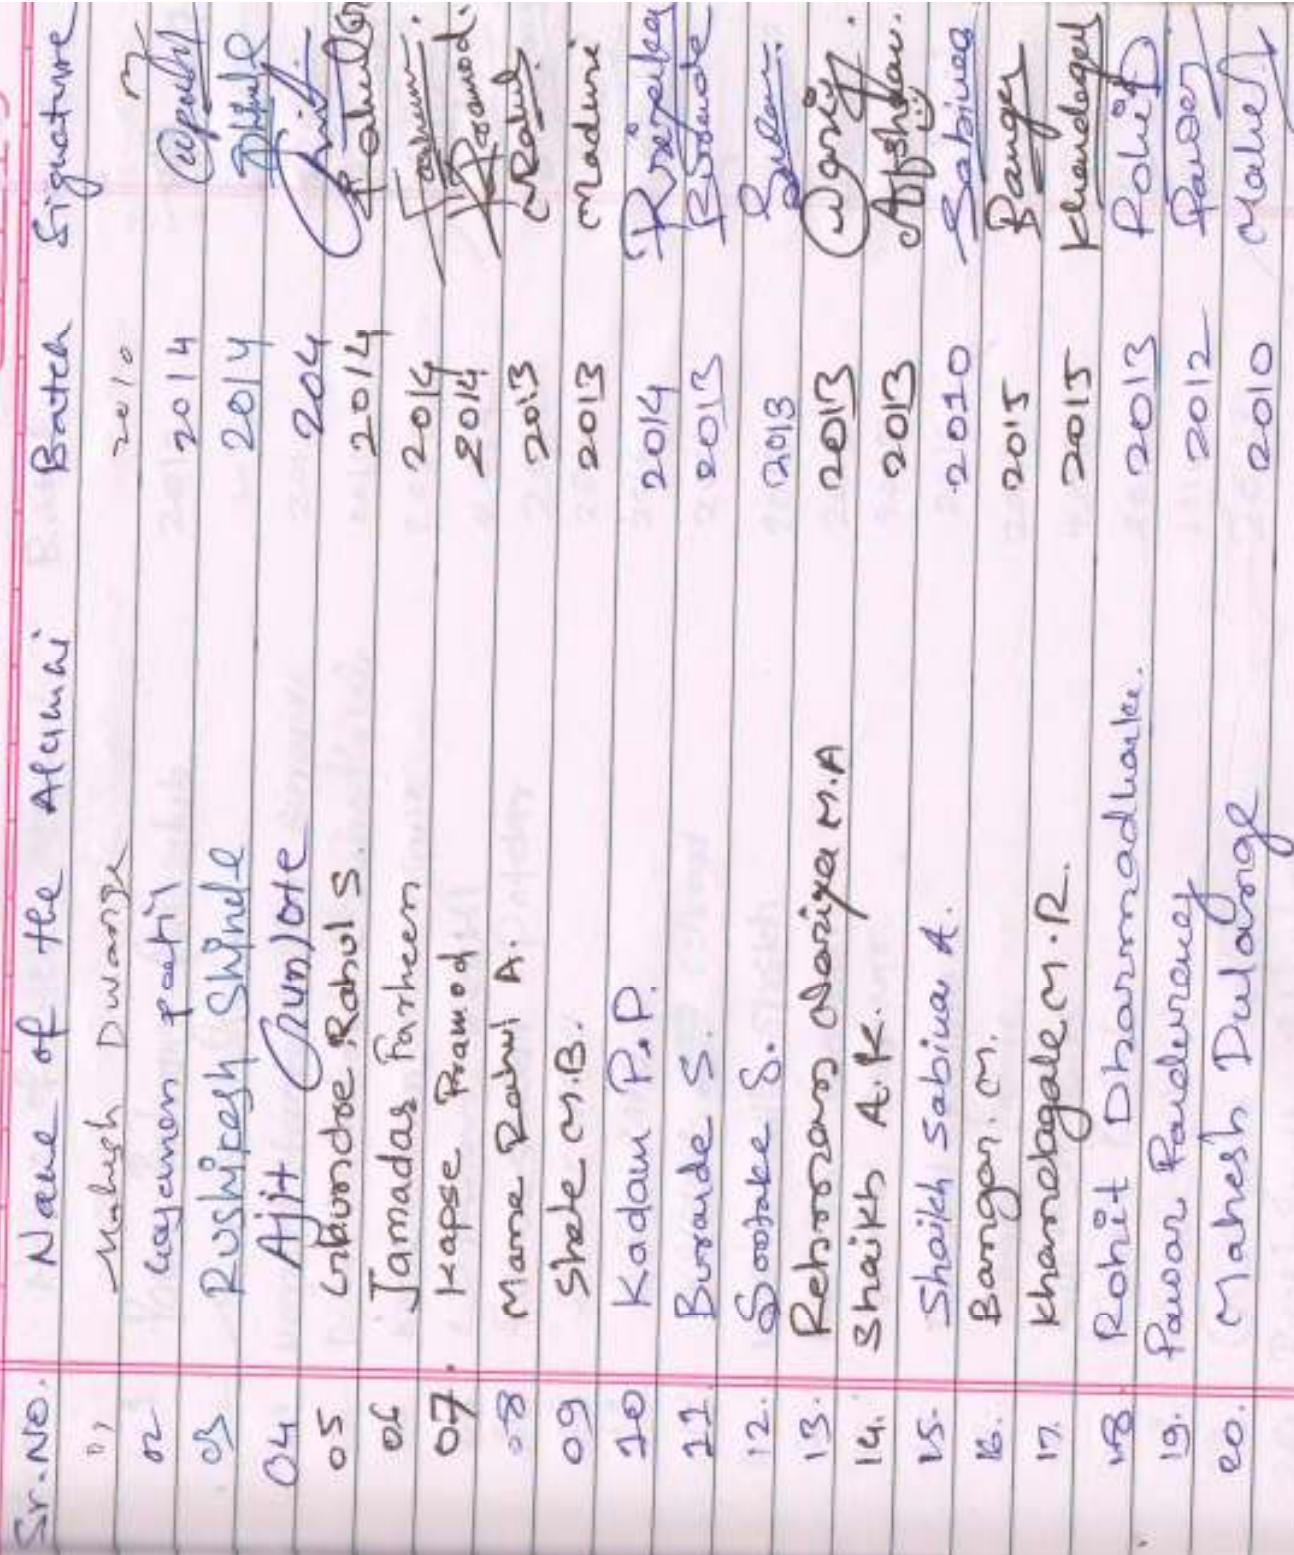 Sr. No. Name of the Alumni Batch Signature
01 Mahesh Dwange 2010
02 patil 2014
03 Rushikesh Shinde 2014
04 Ajit Gunjote 204
05 Rahul S. 2014
06 Jamadar Farheen 2014 Farheen
07. Kapse Pramod 2014 Pramod.
08 Mane Rahul A. 2013 Rahul
09 Shete M.B. 2013 Madhuri
10 Kadam P.P. 2014
11 Burande S. 2013 Burande
12. S. 2013
13. Rehman Naziya M.A 2013
14. Shaikh A.K. 2013 Afshan.
15. Shaikh Sabiua A. 2010 Sabiua
16. Bangar. M. 2015 Bangar
17. Khandagale M.R. 2015 Khandagale
18. Rohit Dharmadhark. 2013 Rohit
19. Pawar Pandurang 2012 Pawar
20. Mahesh Dulange 2010 Mahesh